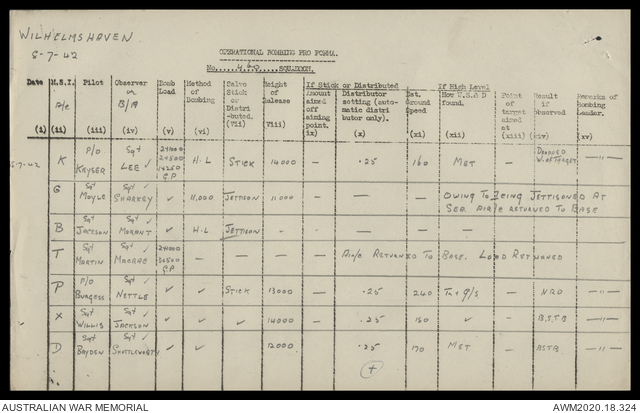 WILHELMSHAVEN.
8-7-42
OPERATIONAL BOMBING PRO FORMA.
No. 460 SQUADRON.
Date M.S.I. Pilot Observer or B/A Bomb Load Method of Bombing Salvo Stick or Distributed. Height of Release If Stick or Distributed Amount aimed off aiming point. Distributor setting (automatic distributor only). Est. Ground Speed If High Level How W.S & D found. Point of target aimed at Result if observed Remarks of Bombing Leader.
A/c
(i) (ii) (iii) (iv) (v) (vi) (vii) (viii) ix) (x) (xi) (xii) (xiii) (xiv) (xv)
8-7-42 K P/O KEYSER Sgt LEE ✓ G.P H.L STICK 14000 — .25 160 MET — W. of TARGET —"—
G Sgt MOYLE Sgt SHARKEY ✓ ✓ 11,000 JETTISON 11000 — — — OWING TO BEING JETTISONED AT SEA AIR/C RETURNED TO BASE
B Sgt JACKSON Sgt MORANT ✓ ✓ H.L JETTISON — — — — — — — —
T Sgt MARTIN Sgt MACRAE ✓ G.P — — — — AIR/C RETURNED TO BASE. LOAD RETAINED
P P/O BURGESS Sgt NETTLE ✓ ✓ STICK 13000 — .25 240 — NRO —"—
X Sgt WILLIS Sgt JACKSON ✓ ✓ ✓ 14000 — .25 ✓ — B.S.T.B —"—
D Sgt Sgt SHUTTLEWORTH ✓ ✓ 12000 .25 170 MET — —"—
+
AUSTRALIAN WAR MEMORIAL
AWM2020.18.324